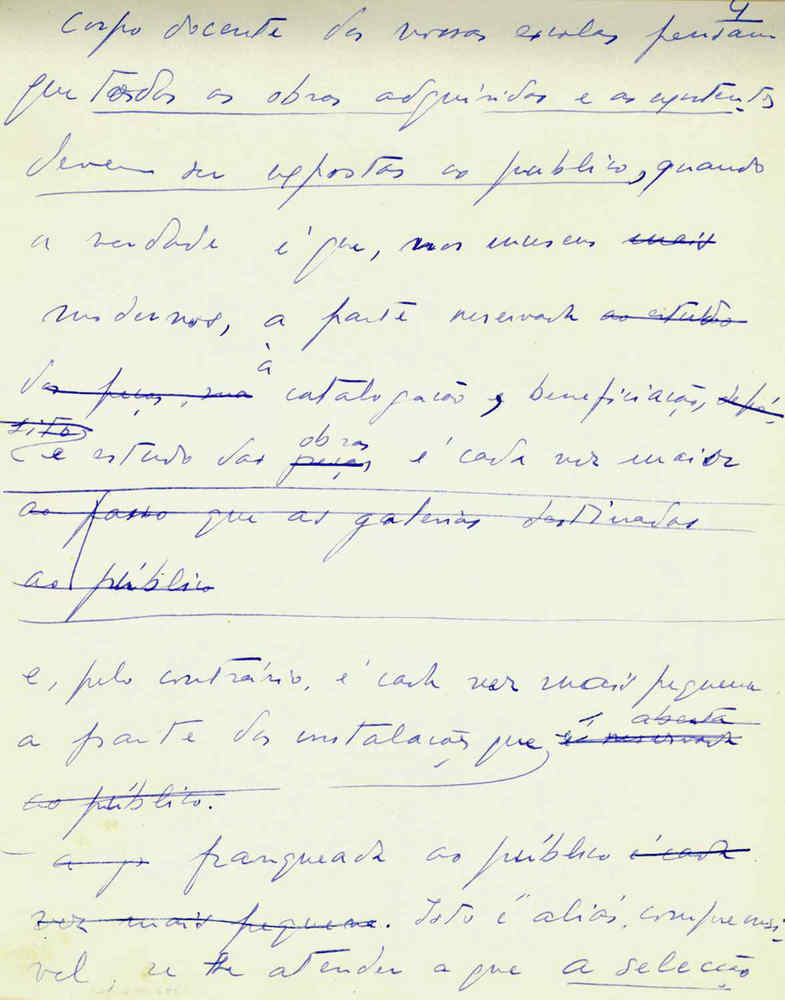 4
corpo docente das nossas escolas pensam
que todas as obras adquiridas e as existentes
devem ser expostas ao publico, quando
a verdade é que, nos museus mais
modernos, a parte reservada ao estudo
das peças, sua à catalogação e, beneficiação, depó-
sito
e estudo das peças obras é cada vez maior
ao passo que as galerias destinadas
ao público
e, pelo contrário, é cada vez mais pequena
a parte das instalações que é reservada aberta
ao público.
a franqueada ao público é cada
vez mais pequena. Isto é aliás, compreensi-
vel, se se atender a que a selecção